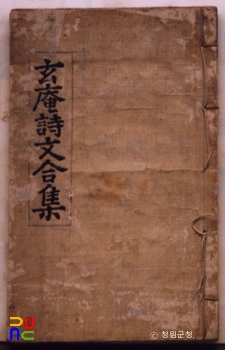 玄庵詩文合集
© 청원군청